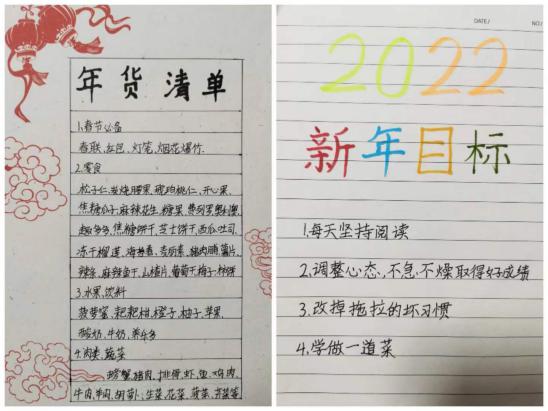 年货清单
1.春节必备
春联,红包,灯笼,烟花爆竹.
2.零食
松子仁,炭烧腰果,琥珀桃仁,开心果,
焦糖瓜子,麻辣花生,糖果,费列罗
趣多多,焦糖饼干,芝士饼干,西瓜吐司,
冻干榴莲,海苔卷,麦丽素,猪肉脯,薯片,
辣条,麻辣鱼干,山楂片,葡萄干,梅子,柿饼
3.水果,饮料
菠萝蜜,耙耙柑,橙子,柚子,苹果,
酸奶,牛奶,养乐多
4.肉类,蔬菜
螃蟹,猪肉,排骨,虾,鱼,鸡肉,
牛肉,羊肉,胡萝卜,生菜,花菜,菠菜,芹菜等
DATE/ NO./
2022
新年目标
1.每天坚持阅读
2.调整心态,不急不燥取得好成绩
3.改掉拖拉的坏习惯
4.学做一道菜